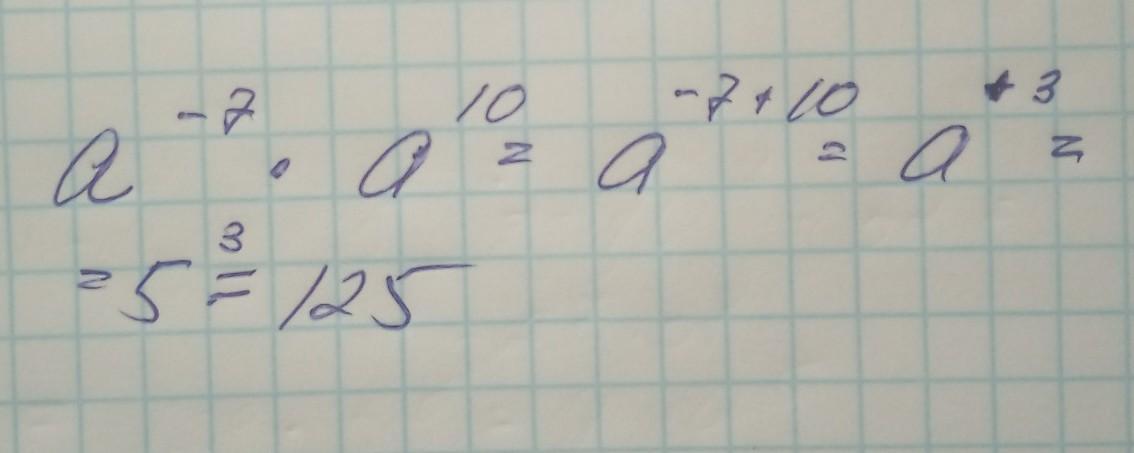 a⁻⁷ · a¹⁰ = a⁻⁷⁺¹⁰ = a⁺³ =
= 5³ = 125